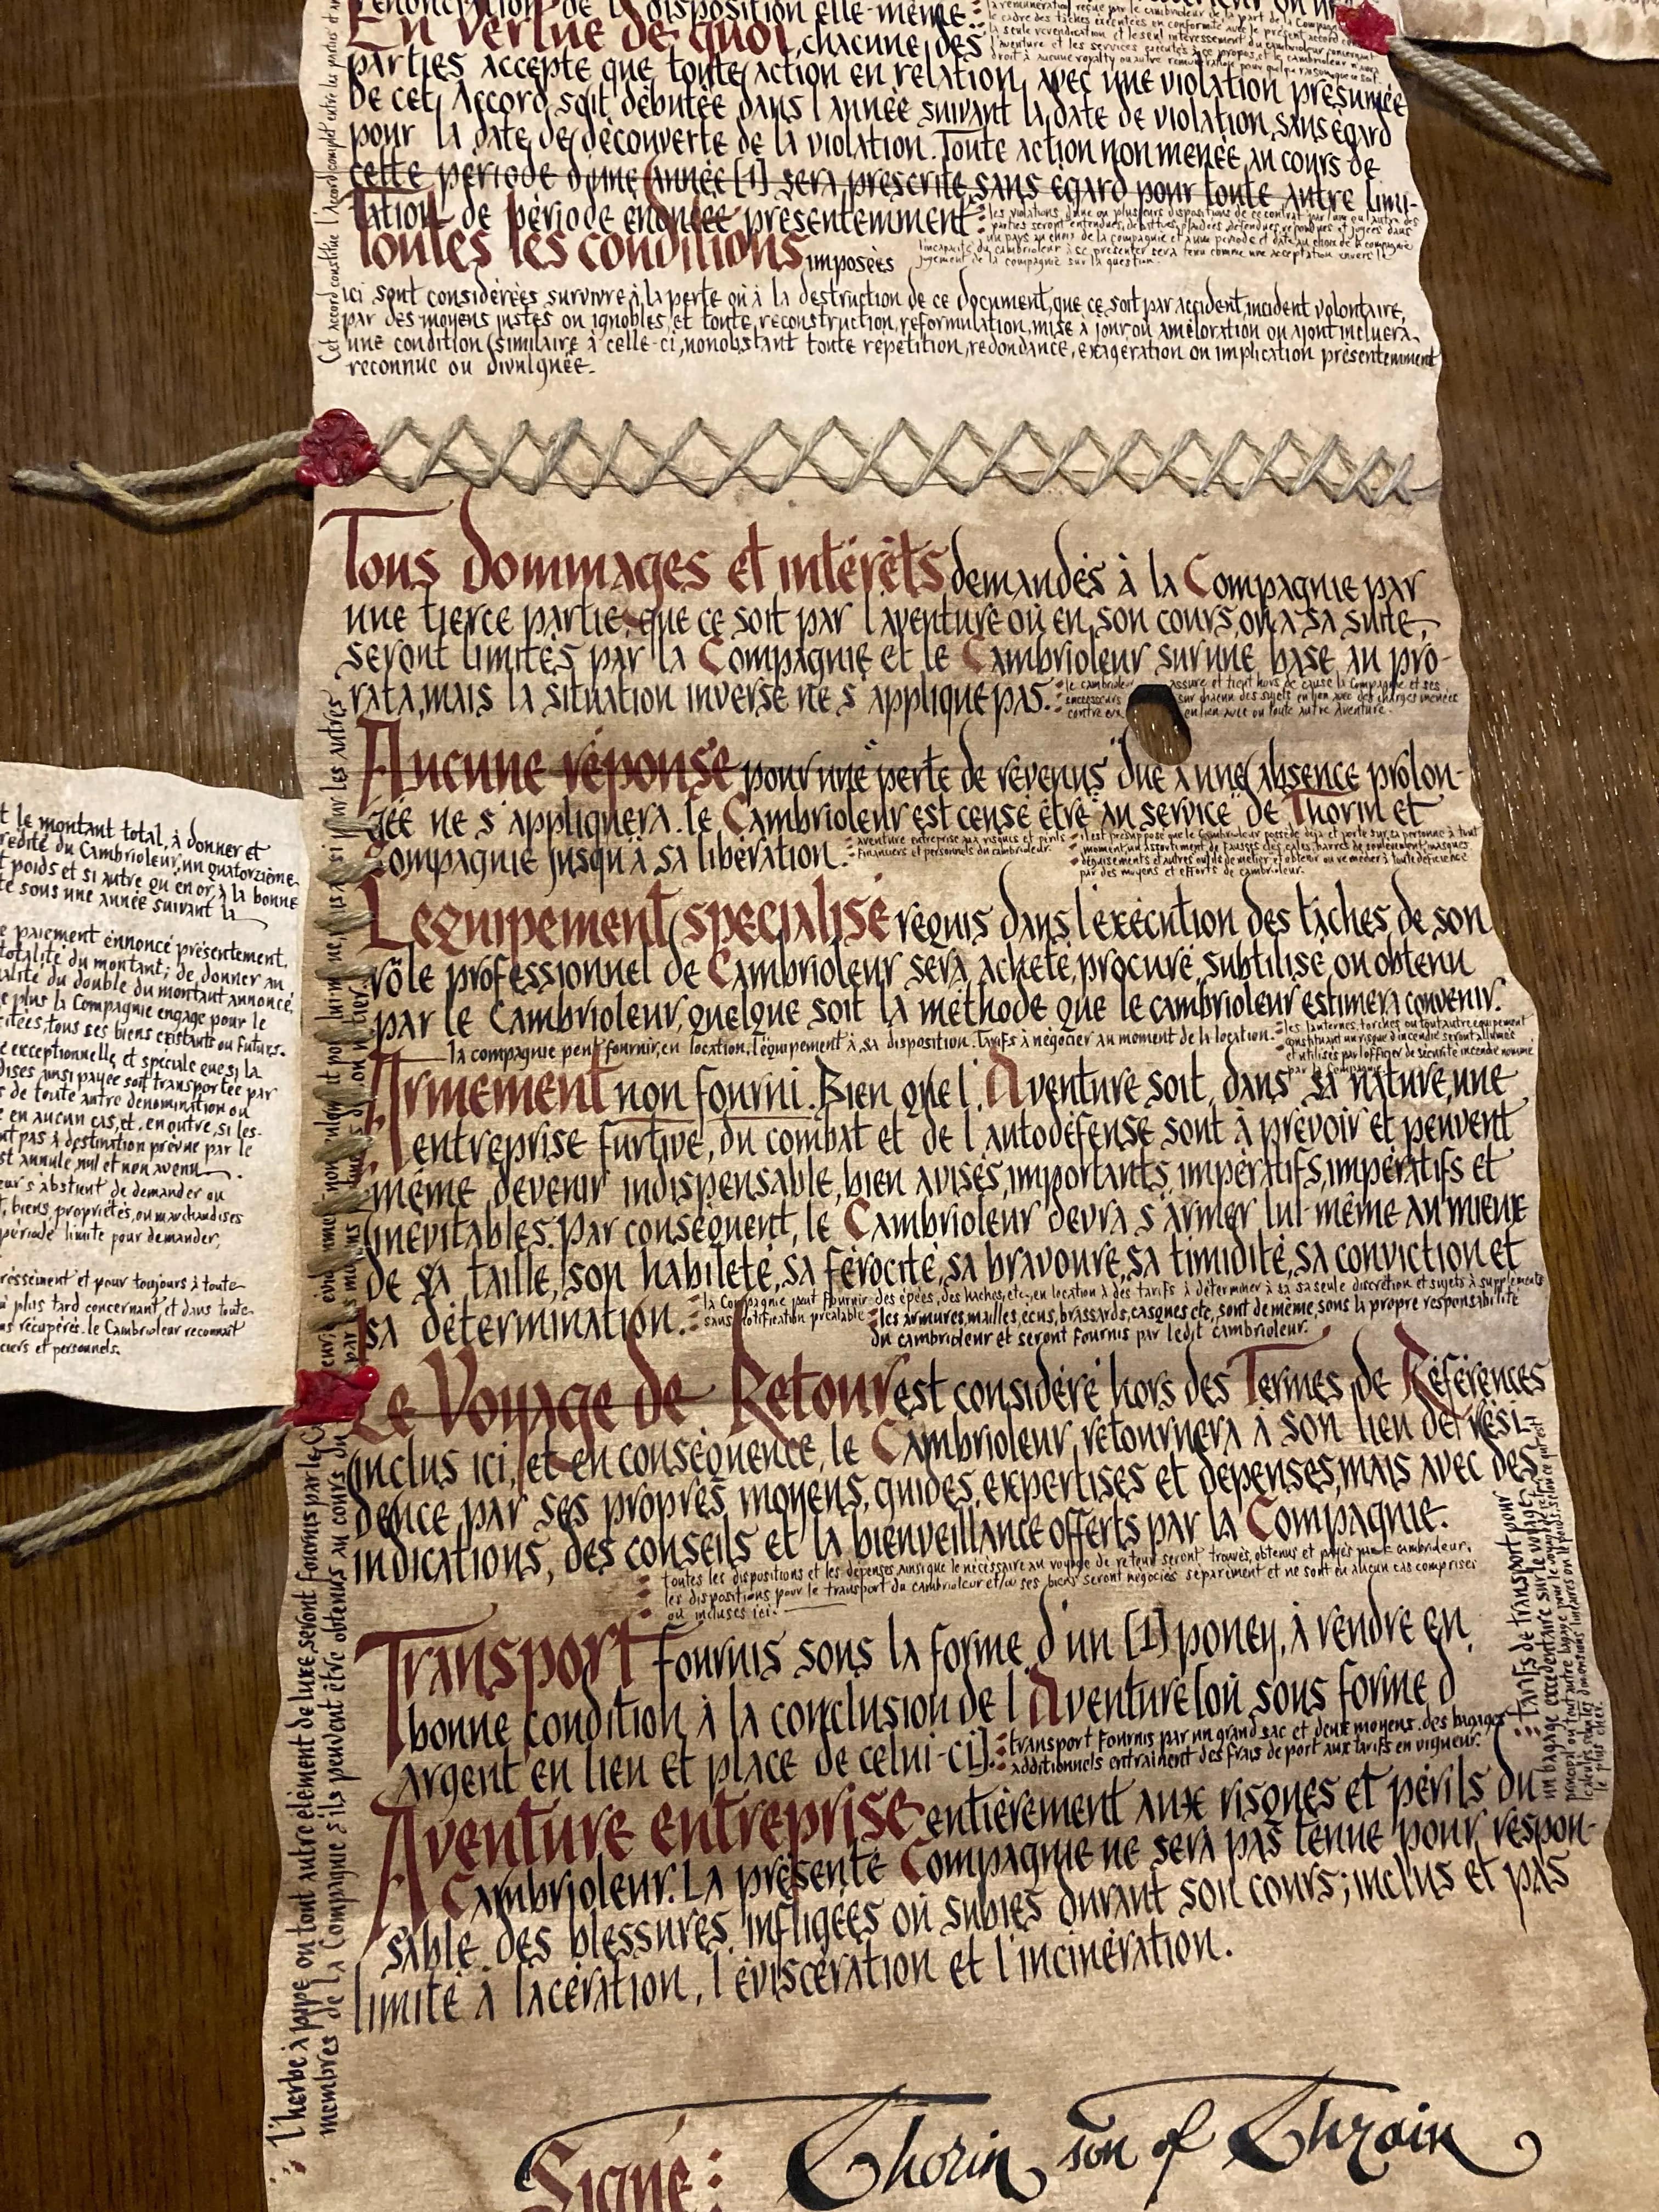 renonciation de la disposition elle-même
En vertue de quoi, chacune des
parties accepte que toute action en relation avec une violation présumée
de cet Accord soit débutée dans l'année suivant la date de violation, sans égard
pour la date de découverte de la violation. Toute action non menée au cours de
cette période d'une année [1] sera prescrite sans égard pour toute autre limi-
tation de période énoncée présentemment.
les violations d'une ou plusieurs dispositions de ce contrat par l'un ou l'autre des
parties seront entendues, débattues, plaidées, défendues, répondues et jugées dans
un pays au choix de la compagnie et à une période et date au choix de la compagnie
l'incapacité du cambrioleur à se présenter sera tenu comme une acceptation envers le
jugement de la compagnie sur la question.
Toutes les conditions imposées
ici sont considérées survivre à la perte où à la destruction de ce document, que ce soit par accident, incident volontaire,
par des moyens justes ou ignobles, et toute reconstruction, reformulation, mise à jour ou amélioration ou ajout incluera
une condition similaire à celle-ci, nonobstant toute répétition, redondance, exagération ou implication présentemment
reconnue ou divulguée.
Tous dommages et intérêts demandés à la Compagnie par
une tierce partie, que ce soit par l'aventure où en son cours, ou à sa suite,
seront limités par la Compagnie et le Cambrioleur sur une base au pro-
rata, mais la situation inverse ne s'applique pas.
le cambriole assure et tient hors de cause la Compagnie et ses
successeurs sur chacun des sujets en lien avec des charges menées
contre eux en lien avec ou toute autre Aventure.
Aucune réponse pour une "perte de revenus" due à une absence prolon-
gée ne s'appliquera. le Cambrioleur est censé être "au service" de Thorin et
Compagnie jusqu'à sa libération.
aventure entreprise aux risques et périls
financiers et personnels du cambrioleur.
il est présupposé que le Cambrioleur possède déjà et porte sur sa personne à tout
moment, un assortiment de fausses clés, cales, barres de soulèvement, masques
déguisements et autres outils de métier, et obtenir ou remédier à toute déficience
par des moyens et efforts de cambrioleur.
L'equipement spécialisé requis dans l'exécution des tâches de son
rôle professionnel de Cambrioleur sera acheté, procuré, subtilisé, ou obtenu
par le Cambrioleur, quelque soit la méthode que le cambrioleur estimera convenir.
la compagnie peut fournir, en location, l'équipement à sa disposition. Tarifs à négocier au moment de la location.
les lanternes, torches ou tout autre équipement
constituant un risque d'incendie seront allumés
et utilisés par l'officier de sécurité incendie nommé
par la Compagnie.
Armement non fourni. Bien que l'Aventure soit, dans sa nature, une
entreprise furtive, du combat et de l'autodéfense sont à prévoir et peuvent
même devenir indispensable, bien avisés, importants, impératifs, impératifs et
inévitables. Par conséquent, le Cambrioleur devra s'armer lui-même au mieux
de sa taille, son habileté, sa férocité, sa bravoure, sa timidité, sa conviction et
sa détermination.
la Compagnie peut fournir des épées, des haches, etc., en location à des tarifs à déterminer à sa sa seule discrétion et sujets à suppléments
sans notification préalable
les armures, mailles, écus, brassards, casques etc, sont de même, sous la propre responsabilité
du cambrioleur et seront fournis par ledit cambrioleur.
Le Voyage de Retour est considéré hors des Termes de Références
inclus ici, et en conséquence, le Cambrioleur retournera à son lieu de rési-
dence par ses propres moyens, guides, expertises et dépenses, mais avec des
indications, des conseils et la bienveillance offerts par la Compagnie.
toutes les dispositions et les dépenses, ainsi que le nécessaire au voyage de retour seront trouvés, obtenus et payés par le cambrioleur.
les dispositions pour le transport du cambrioleur et/ou ses biens seront négociés séparément et ne sont en aucun cas comprises
où incluses ici.
Transport fournis sous la forme d'un [1] poney, à rendre en
bonne condition à la conclusion de l'Aventure [où sous forme d'
argent en lieu et place de celui-ci].
transport fournis par un grand sac et deux moyens. des bagages
additionnels entraînent des frais de port aux tarifs en vigueur.
Aventure entreprise entièrement aux risques et périls du
Cambrioleur. La présente Compagnie ne sera pas tenue pour respon-
sable des blessures infligées où subies durant son cours; inclus et pas
limité à lacération, l'éviscération et l'incinération.
Signé: Thorin son of Thrain
t le montant total, à donner et
rédité du Cambrioleur, un quatorzième
t poids et si autre qu'en or, à la bonne
té sous une année suivant la
e paiement énnoncé présentement.
totalité du montant; de donner au
alité du double du montant annoncé.
e plus la Compagnie engage pour le
citées, tous ses biens existants ou futurs.
e exceptionnelle et spéciale que si la
dises ainsi payée soit transportée par
s de toute autre dénomination ou
e en aucun cas, et, en outre, si les-
nt pas à destination prévue par le
st annulé, nul et non avenu
eur s'abstient de demander ou
t, biens, propriétés, ou marchandises
période limite pour demander,
ressément et pour toujours à toute
u plus tard concernant, et dans toute
ns récupérés. le Cambrioleur reconnaît
ciers et personnels.
Cet accord constitue l'Accord complet entre les parties et
l'herbe à pipe ou tout autre élément de luxe, seront fournis par le C
membres de la Compagnie s'ils peuvent être obtenus au cours du
tarifs de transport pour
un bagage excédentaire sur le voyage